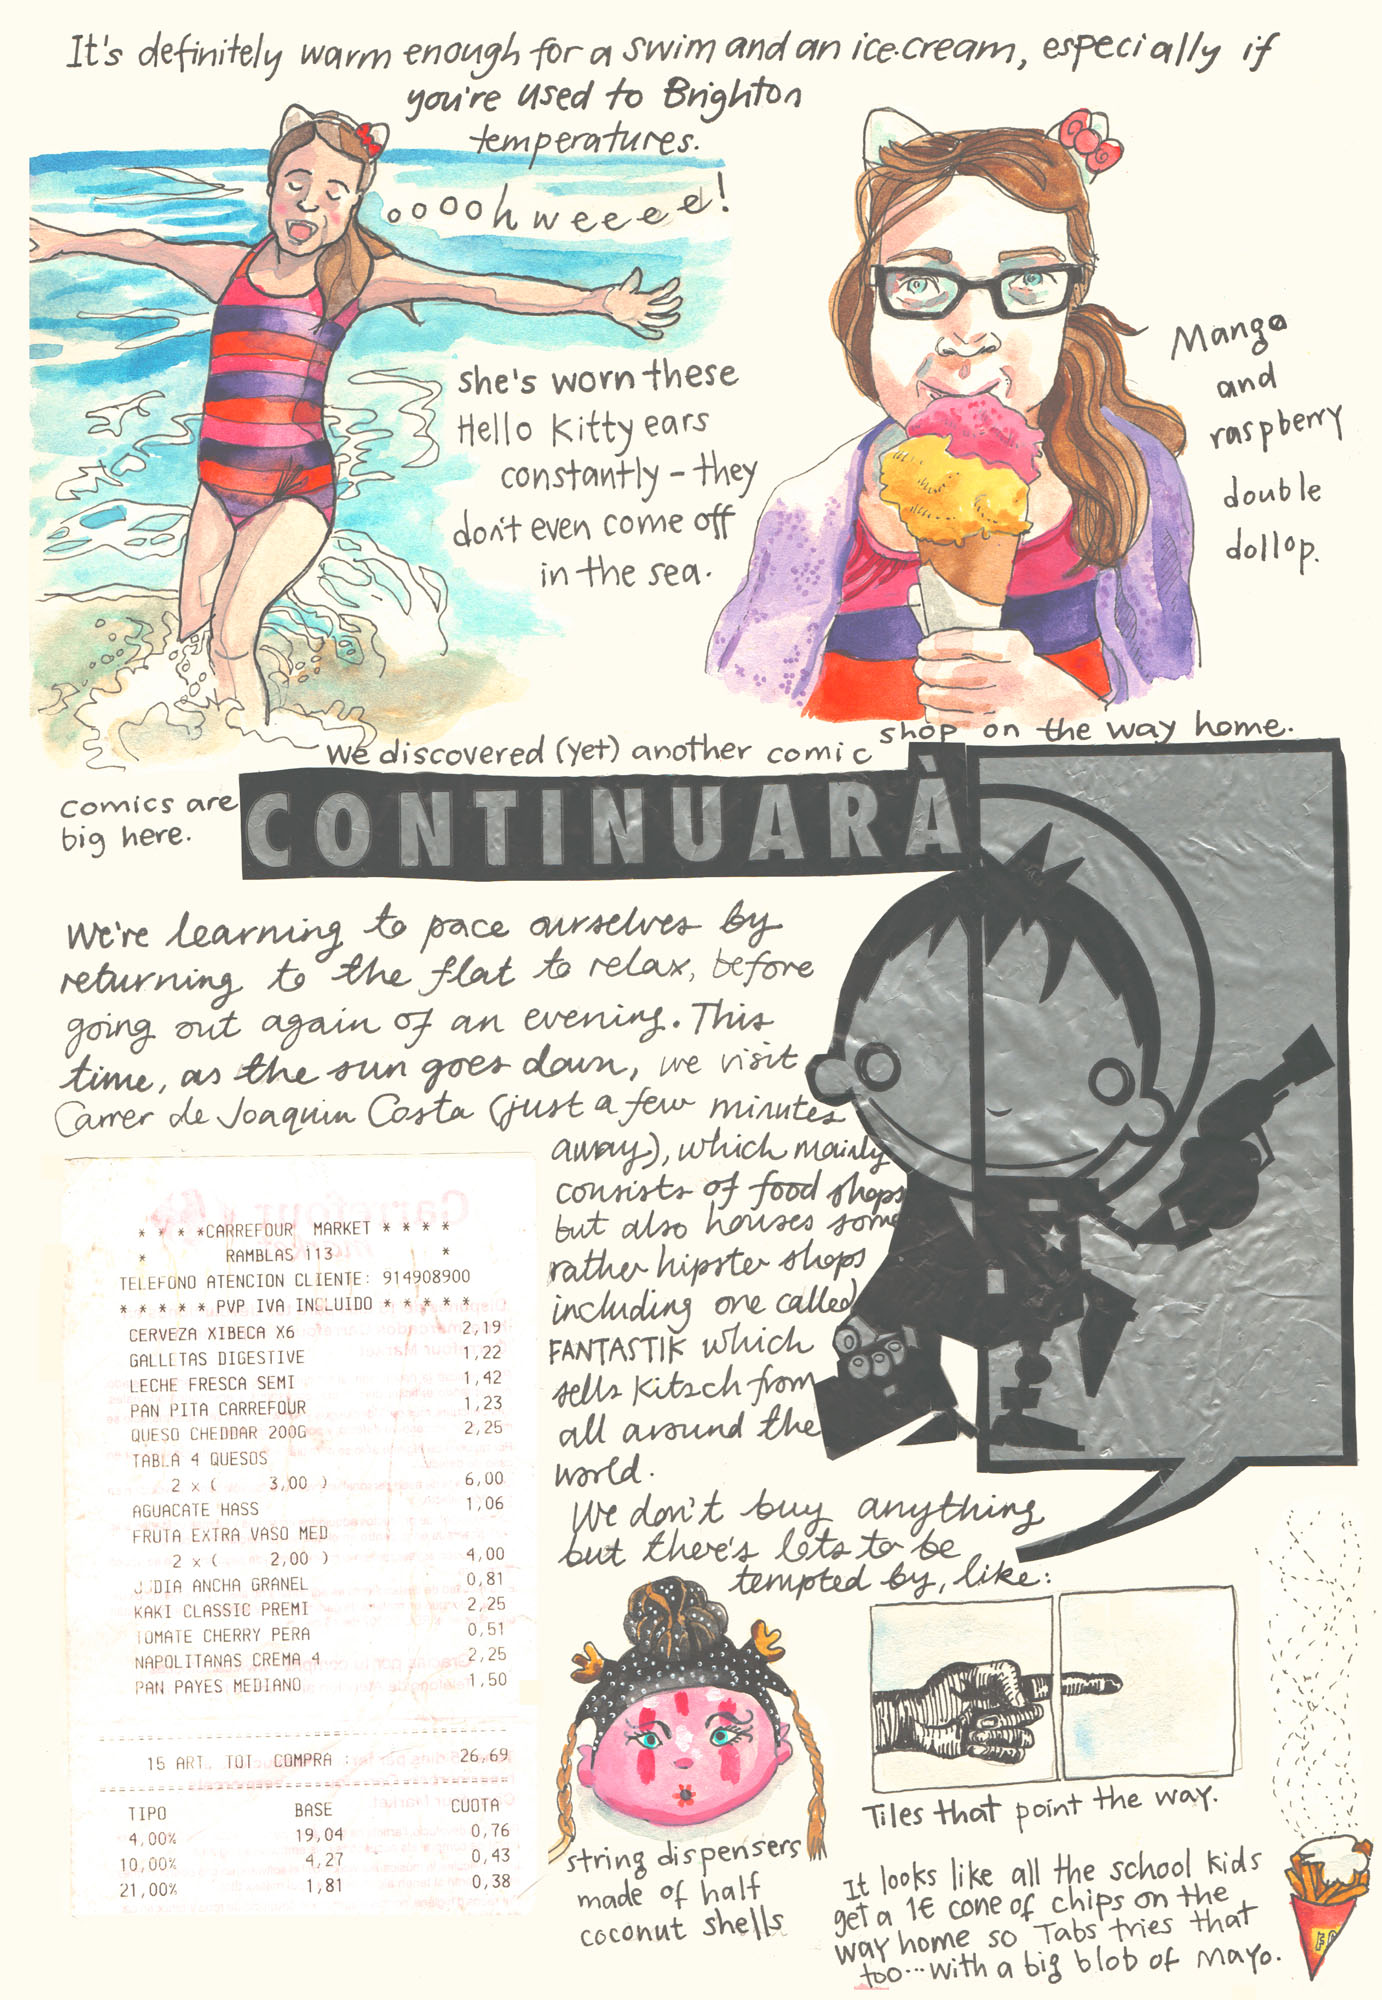 It's definitely warm enough for a swim and an ice-cream, especially if
you're used to Brighton
temperatures.
ooooh weeee!
she's worn these
Hello Kitty ears
constantly - they
don't even come off
in the sea.
Mango
and
raspberry
double
dollop.
We discovered (yet) another comic shop on the way home.
comics are
big here.
CONTINUARÀ
We're learning to pace ourselves by
returning to the flat to relax, before
going out again of an evening. This
time, as the sun goes down, we visit
Carrer de Joaquin Costa (just a few minutes
away), which mainly
consists of food shops
but also houses some
rather hipster shops
including one called
FANTASTIK which
sells Kitsch from
all around the
world.
We don't buy anything
but there's lots to be
tempted by, like:
* * * *CARREFOUR MARKET * * * *
* RAMBLAS 113 *
TELEFONO ATENCION CLIENTE: 914908900
* * * * * PVP IVA INCLUIDO * * * * *
CERVEZA XIBECA X6 2,19
GALLETAS DIGESTIVE 1,22
LECHE FRESCA SEMI 1,42
PAN PITA CARREFOUR 1,23
QUESO CHEDDAR 200G 2,25
TABLA 4 QUESOS
2 x ( 3,00 ) 6,00
AGUACATE HASS 1,06
FRUTA EXTRA VASO MED
2 x ( 2,00 ) 4,00
JUDIA ANCHA GRANEL 0,81
KAKI CLASSIC PREMI 2,25
TOMATE CHERRY PERA 0,51
NAPOLITANAS CREMA 4 2,25
PAN PAYES MEDIANO 1,50
15 ART. TOT. COMPRA : 26,69
TIPO BASE CUOTA
4,00% 19,04 0,76
10,00% 4,27 0,43
21,00% 1,81 0,38
string dispensers
made of half
coconut shells
Tiles that point the way.
It looks like all the school kids
get a 1€ cone of chips on the
way home so Tabs tries that
too... with a big blob of mayo.